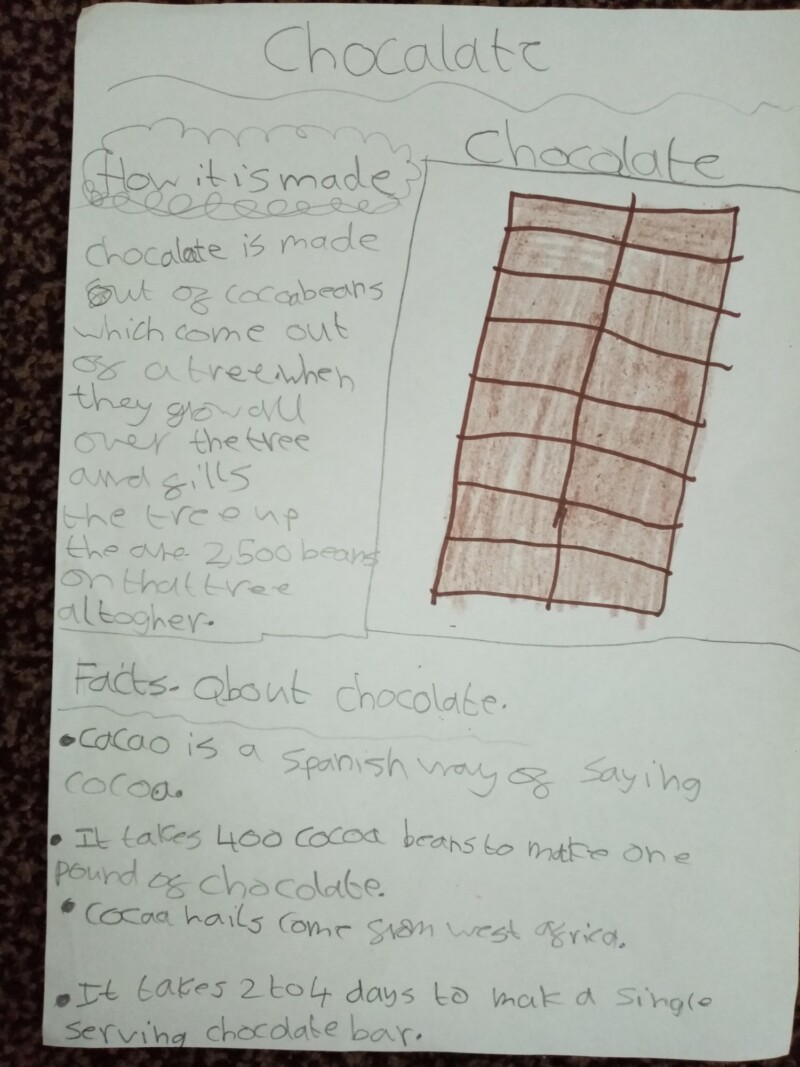 Chocalate
How it is made
Chocolate
chocalate is made
out of cocoabeans
which come out
of a tree.when
they grow all
over the tree
and fills
the tree up
the are 2,500 beans
on that tree
altogher.
Facts- about chocolate.
•cacao is a spanish way of saying
cocoa.
• It takes 400 cocoa beans to make one
pound of chocolate.
• Cocoa hails come from west africa.
• It takes 2 to 4 days to mak a single
serving chocolate bar.